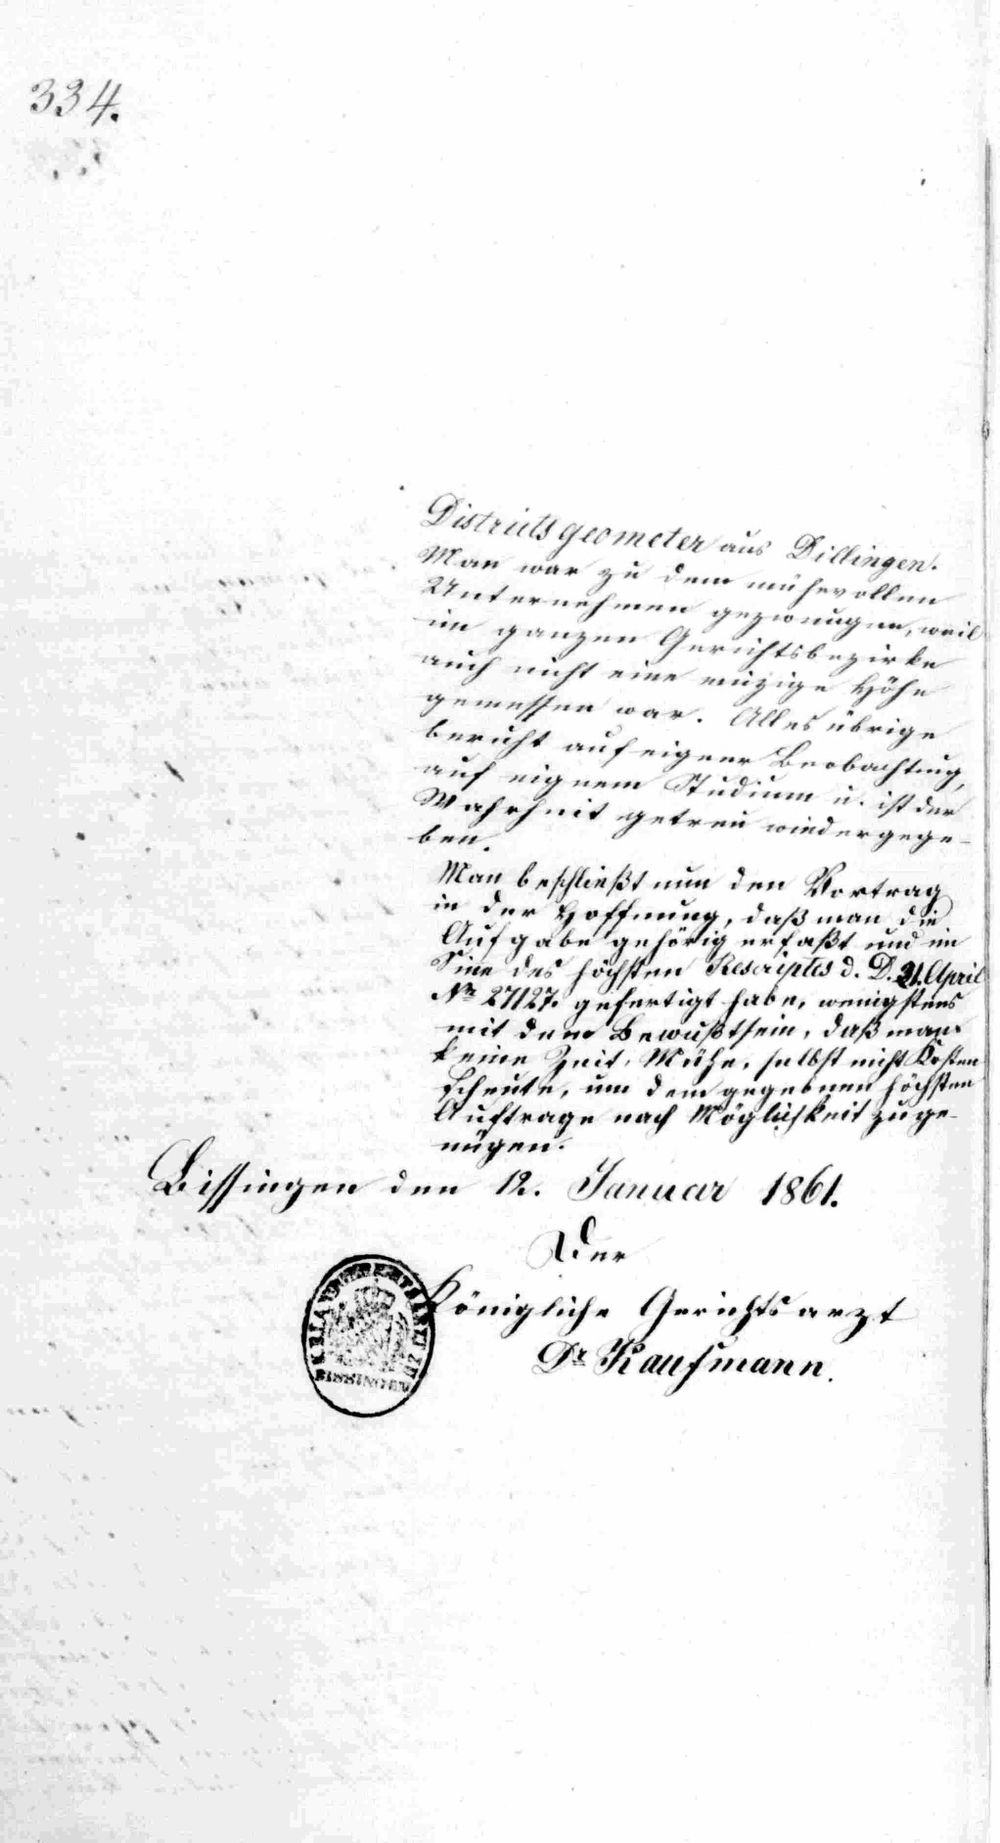 334.
Districtsgeometer aus Dillingen.
Man war zu dem mühevollen
Unternehmen gezwungen, weil
im ganzen Gerichtsbezirke
auch nicht eine einzige Höhe
gemessen war. Alles übrige
beruht auf eigner Beobachtung,
auf eignem Studium u. ist der
Wahrheit getreu wiedergege-
ben.
Man beschließt nun den Vortrag
in der Hoffnung, daß man die
Aufgabe gehörig erfaßt und im
Sine des höchsten Rescriptes d. D. 21. April
Nr 27127. gefertigt habe, wenigstens
mit dem Bewußtsein, daß man
keine Zeit, Mühe, selbst nicht Kosten
scheute, um dem gegebnen höchsten
Auftrage nach Möglichkeit zu ge-
nügen.
Bissingen den 12. Januar 1861.
Der
Königliche Gerichtsarzt
Dr Kaufmann.
BISSINGEN